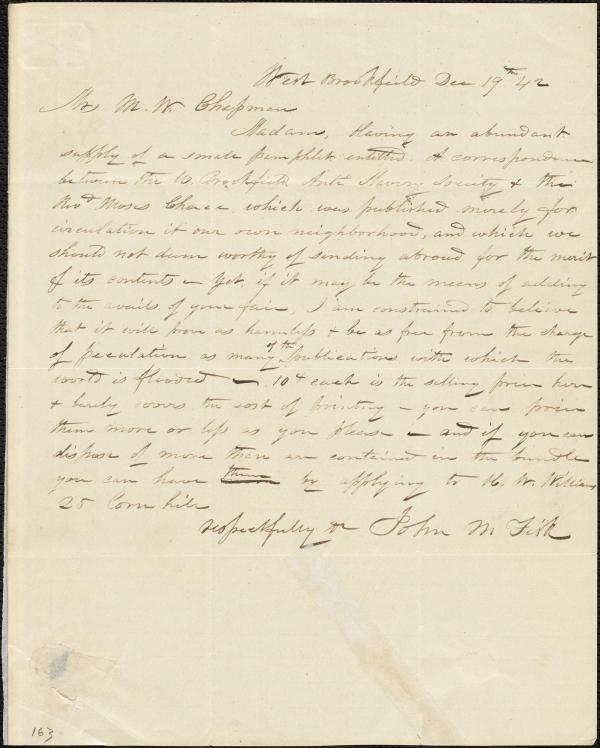 West Brookfield Dec 19th 42
Mrs M. W. Chapman
Madam, Having an abundant
supply of a small pamphlet entitled A correspondence
between the W. Brookfield Anti Slavery Society & the
Revd Moses Chace, which was published merely for
circulation in our own neighborhood, and which we
should not deem worthy of sending abroad for the merit
of its contents – Yet, if it may be the means of adding
to the avails of your fair, I am constrained to believe
that it will prove as harmless & be as free from the charge
of speculation as many of the publications with which the
world is flooded – 10¢ each is the selling price here
& barely covers the cost of printing – you can price
them more or less as you please – and if you can
dispose of more than are contained in the bundle
you can have them by applying to H. W. Williams
25 Cornhill
respectfully &c John M Fisk
163